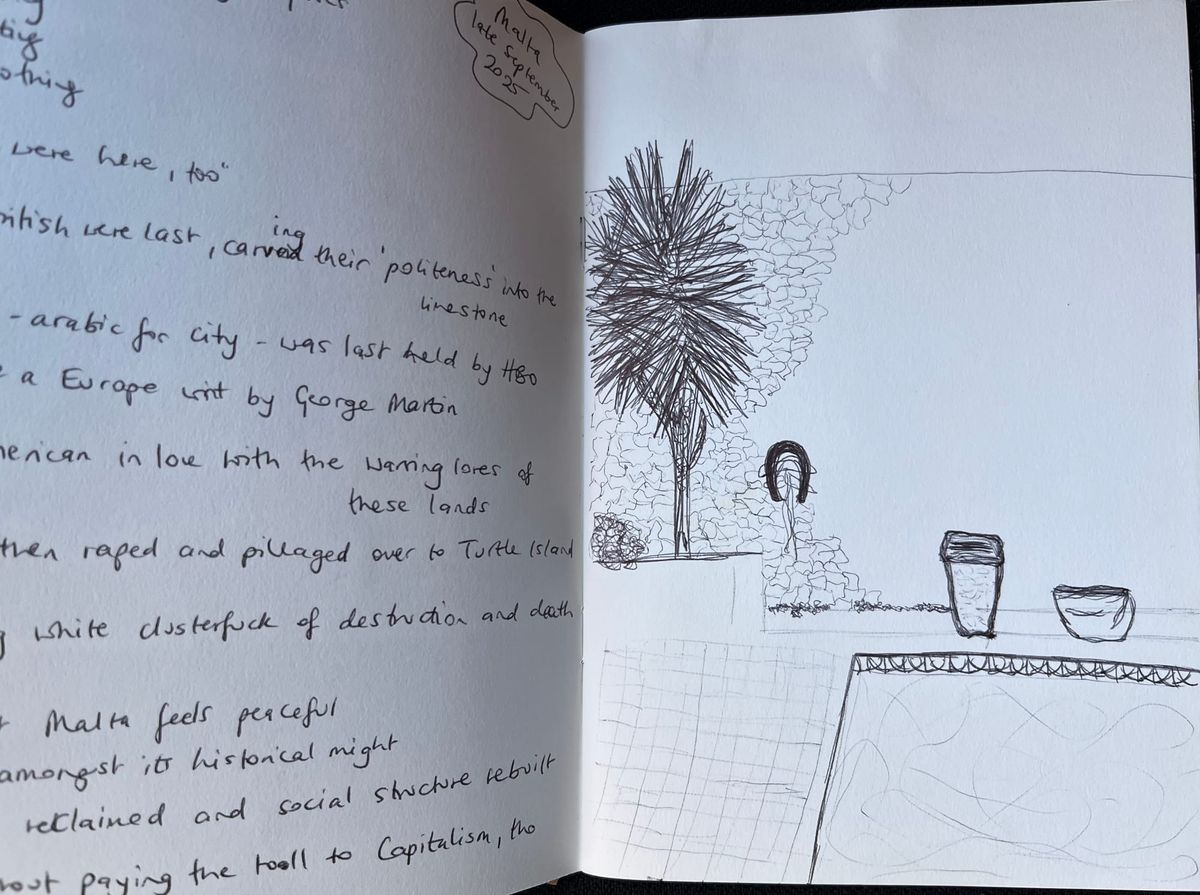 othing
were here, too"
British were last, carving their 'politeness' into the
limestone
- arabic for city - was last held by HBO
a Europe writ by George Martin
merican in love with the warring lores of
these lands
then raped and pillaged over to Turtle Island
white clusterfuck of destruction and death
Malta feels peaceful
amongst its historical might
reclaimed and social structure rebuilt
hout paying the toll to Capitalism, tho
Malta
late September
2025